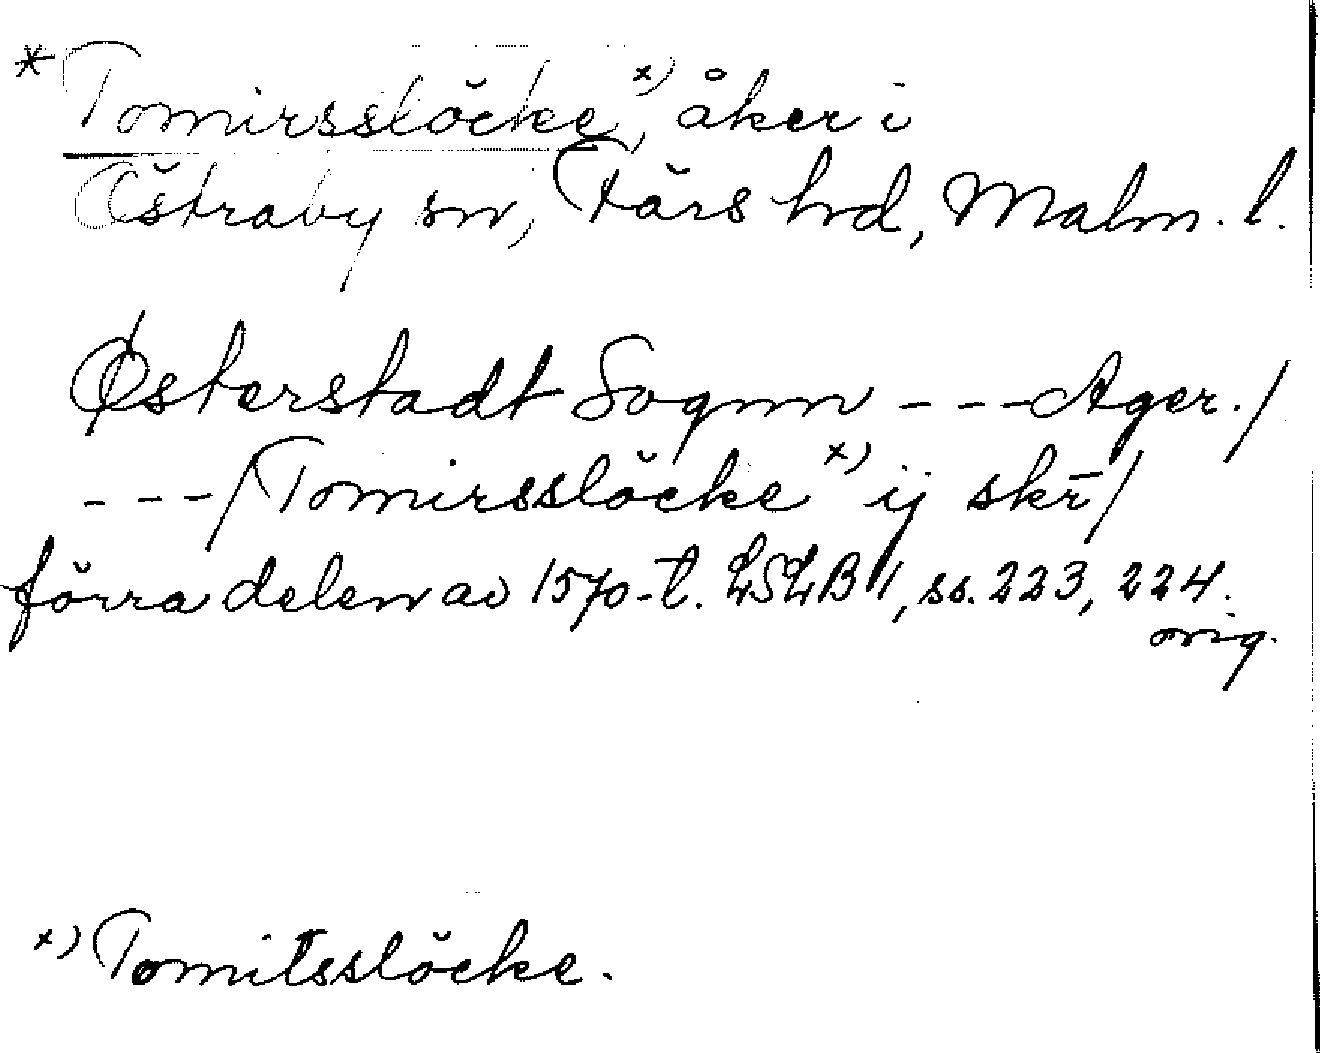 * Tomirsslöcke x), åker i
Östraby sn, Färs hrd, Malm. l.
Østerstadt Sognn --- Ager./
---/Tomirsslöcke x) ij skr̄/
förra delen av 1570-t. LSLB 1, ss. 223, 224.
orig.
x) Tomitsslöcke.